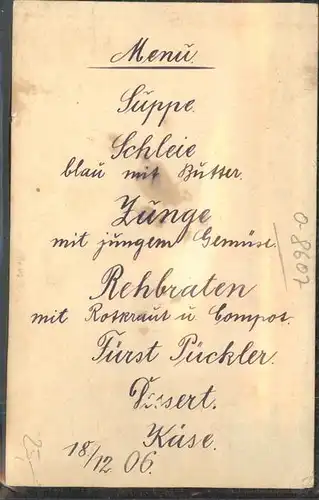 Menü.
Suppe.
Schleie
blau mit Butter.
Zunge
mit jungem Gemüse.
Rehbraten
mit Rotkraut u Compot.
Fürst Pückler.
Dessert.
Käse.
18/12 06.
25,-
0-8607